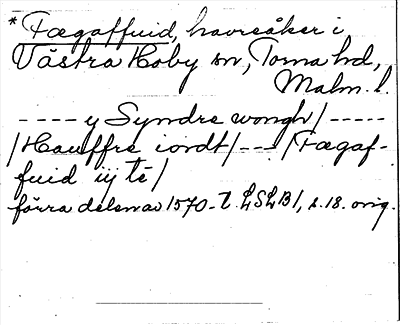 * Fægaffuid, havreåker i
Västra Hoby sn, Torna hd,
Malm. l.
---- y Syndre wongh/-----
/Hauffre iordt/---/Fægaf-
fuid iij té/
förra delen av 1570-t. LSLB1, s. 18. orig.